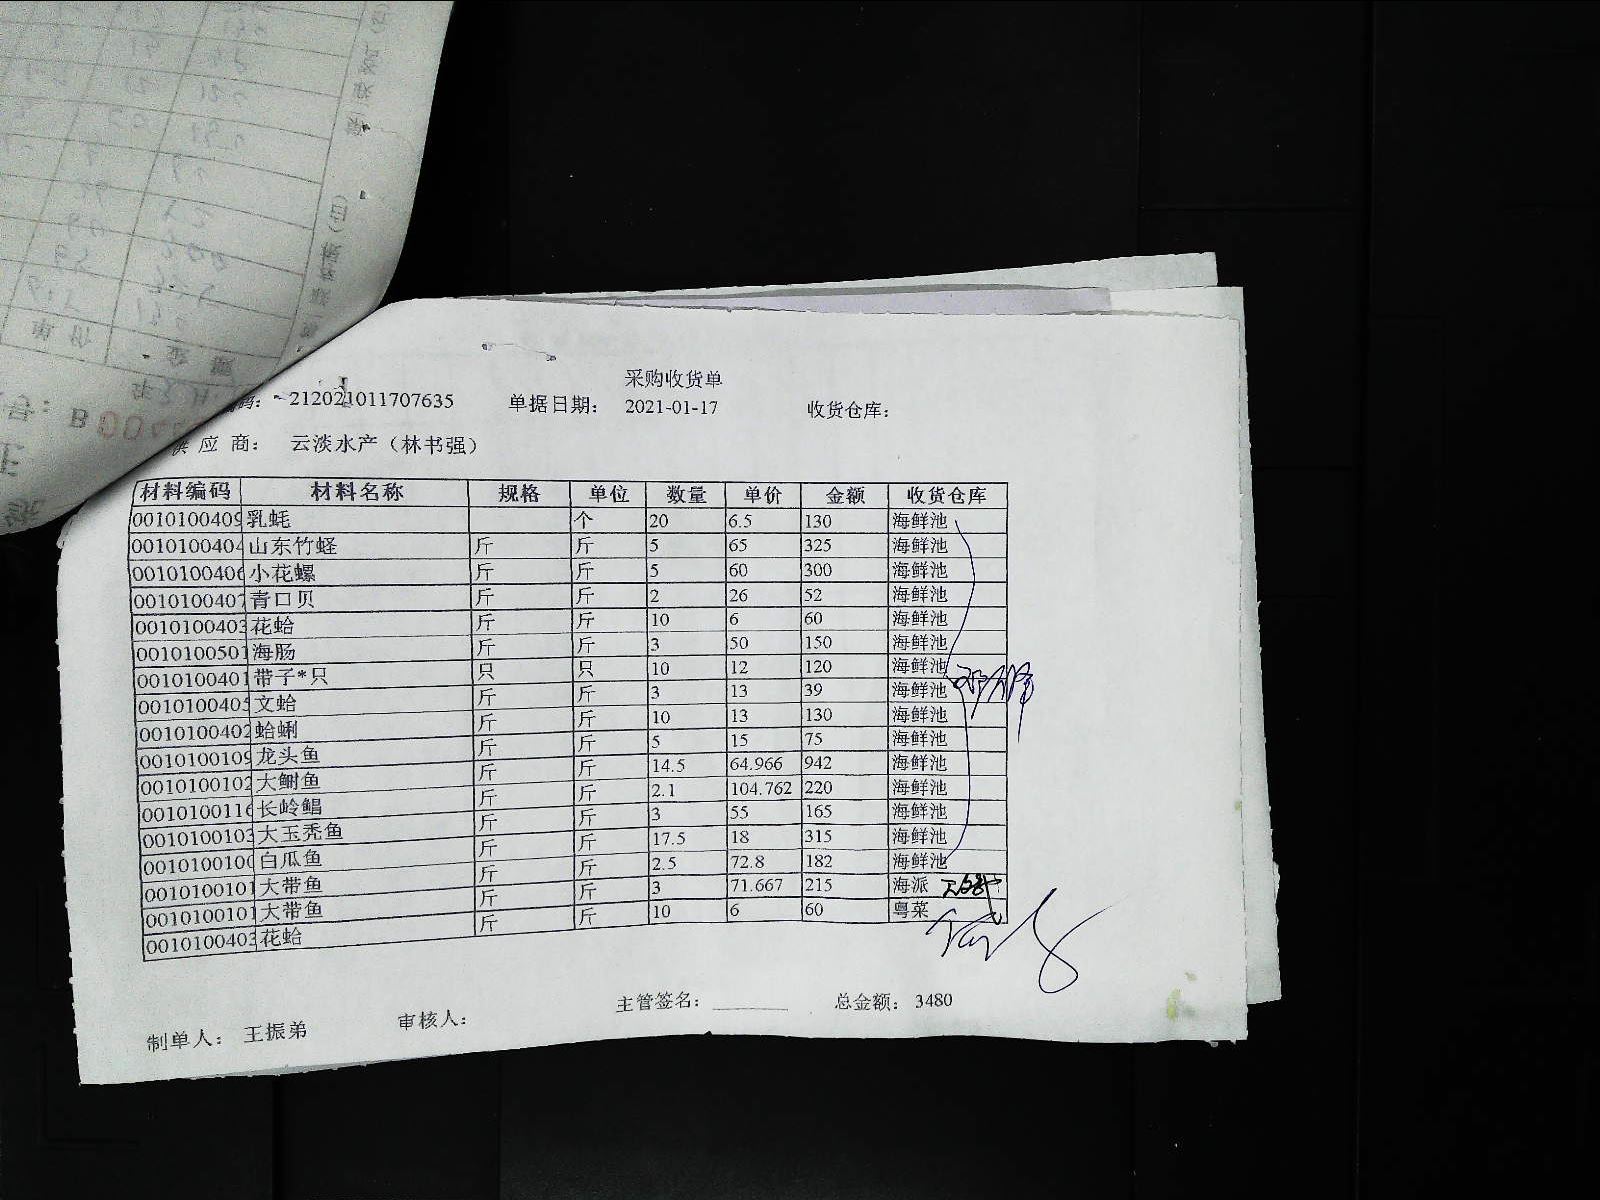 采购收货单
码： 212021011707635 单据日期： 2021-01-17 收货仓库：
供 应 商： 云淡水产（林书强）
材料编码 材料名称 规格 单位 数量 单价 金额 收货仓库
0010100409 乳蚝 个 20 6.5 130 海鲜池
0010100404 山东竹蛏 斤 斤 5 65 325 海鲜池
0010100406 小花螺 斤 斤 5 60 300 海鲜池
0010100407 青口贝 斤 斤 2 26 52 海鲜池
0010100403 花蛤 斤 斤 10 6 60 海鲜池
0010100501 海肠 斤 斤 3 50 150 海鲜池
0010100401 带子*只 只 只 10 12 120 海鲜池
0010100405 文蛤 斤 斤 3 13 39 海鲜池
0010100402 蛤蜊 斤 斤 10 13 130 海鲜池
0010100109 龙头鱼 斤 斤 5 15 75 海鲜池
0010100102 大鲥鱼 斤 斤 14.5 64.966 942 海鲜池
0010100116 长岭鲳 斤 斤 2.1 104.762 220 海鲜池
0010100103 大玉秃鱼 斤 斤 3 55 165 海鲜池
0010100100 白瓜鱼 斤 斤 17.5 18 315 海鲜池
0010100101 大带鱼 斤 斤 2.5 72.8 182 海鲜池
0010100101 大带鱼 斤 斤 3 71.667 215 海派
0010100403 花蛤 斤 斤 10 6 60 粤菜
主管签名： 总金额： 3480
制单人： 王振弟 审核人：